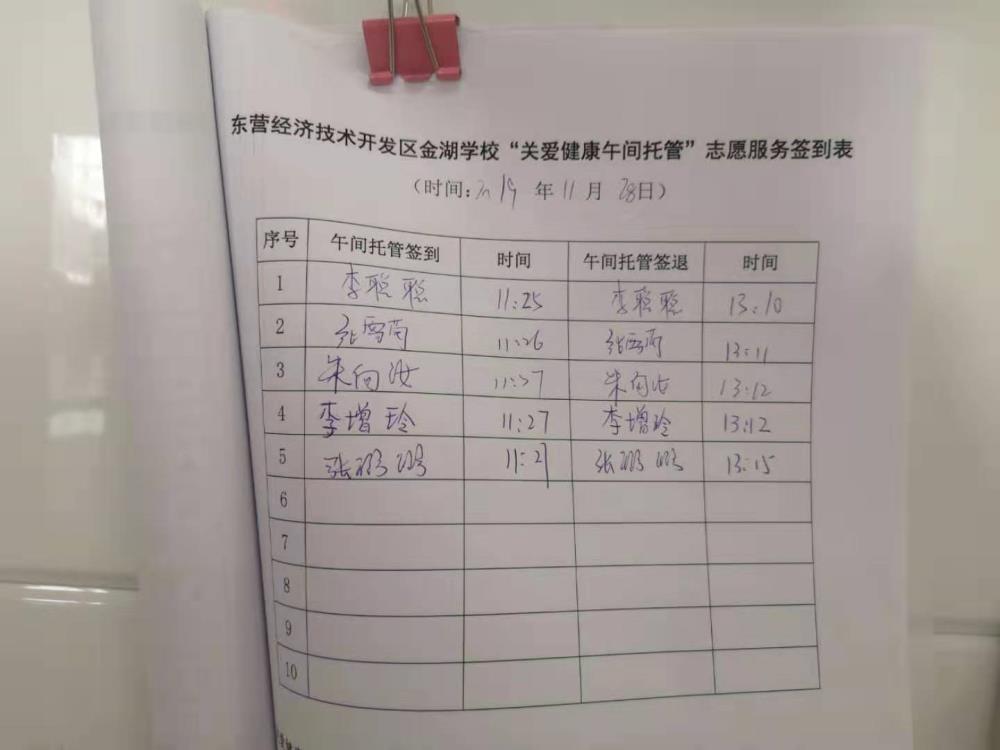 东营经济技术开发区金湖学校“关爱健康午间托管”志愿服务签到表
（时间：2019 年 11 月 28日）
序号 午间托管签到 时间 午间托管签退 时间
1 李聪聪 11:25 李聪聪 13:10
2 张雪茵 11:26 13:11
3 朱向汝 11:27 朱向汝 13:12
4 李增玲 11:27 李增玲 13:12
5 张鹏鹏 11:27 张鹏鹏 13:15
6
7
8
9
10